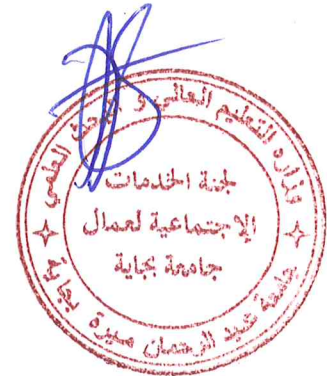 وزارة التعليم العالي و البحث العلمي
لجنة الخدمات
الإجتماعية لعمال
جامعة بجاية
جامعة عبد الرحمان ميرة بجاية